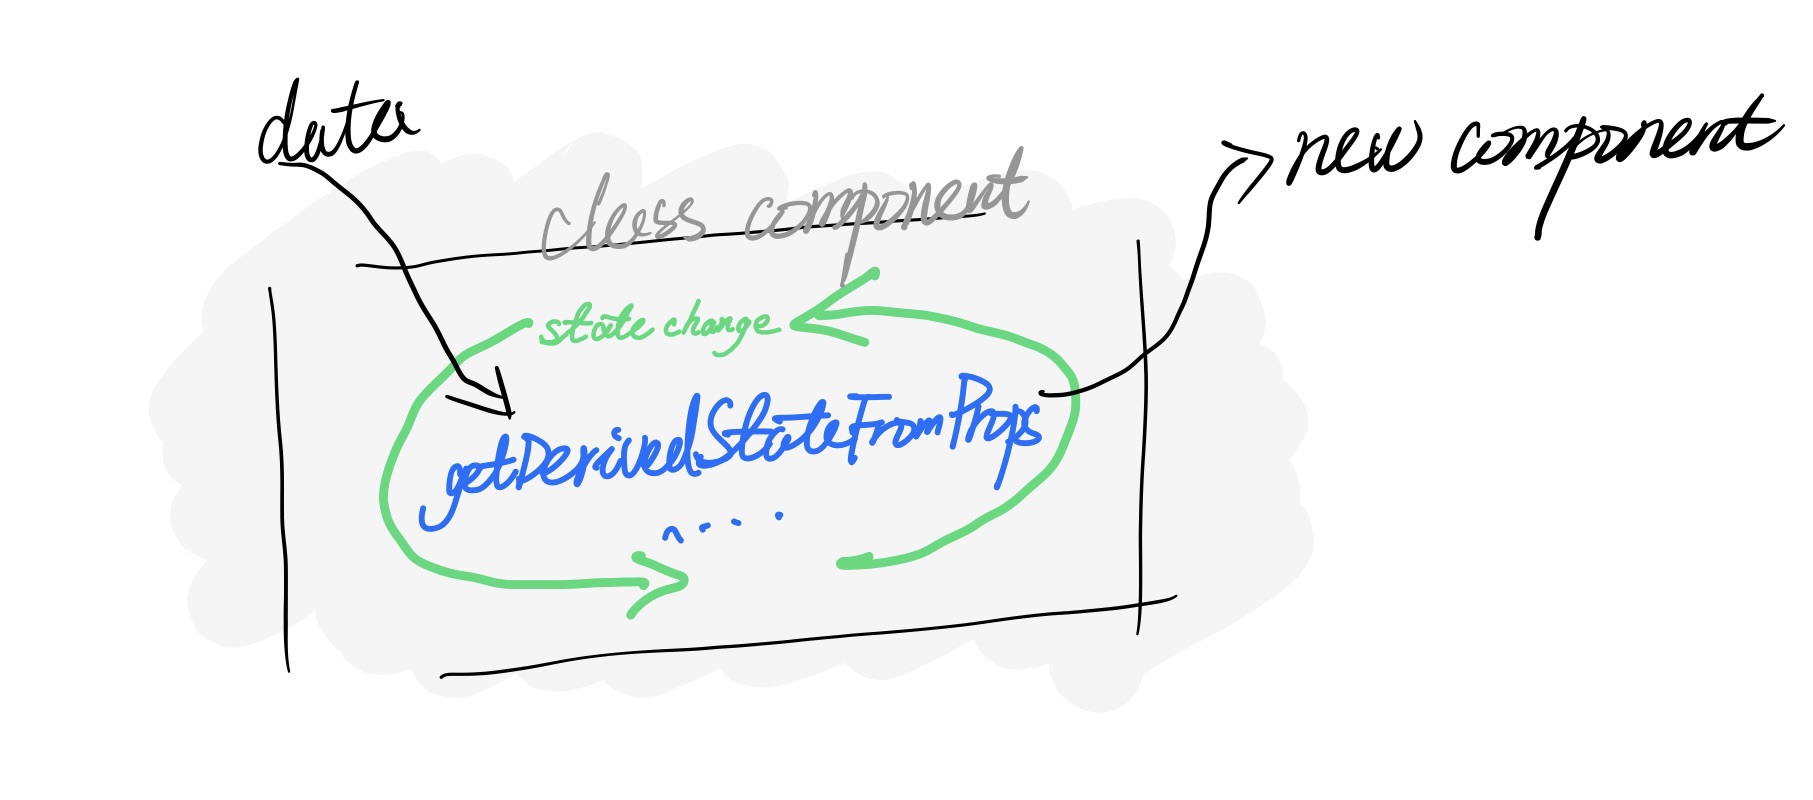 data
new component
class component
state change
getDerivedStateFromProps
....